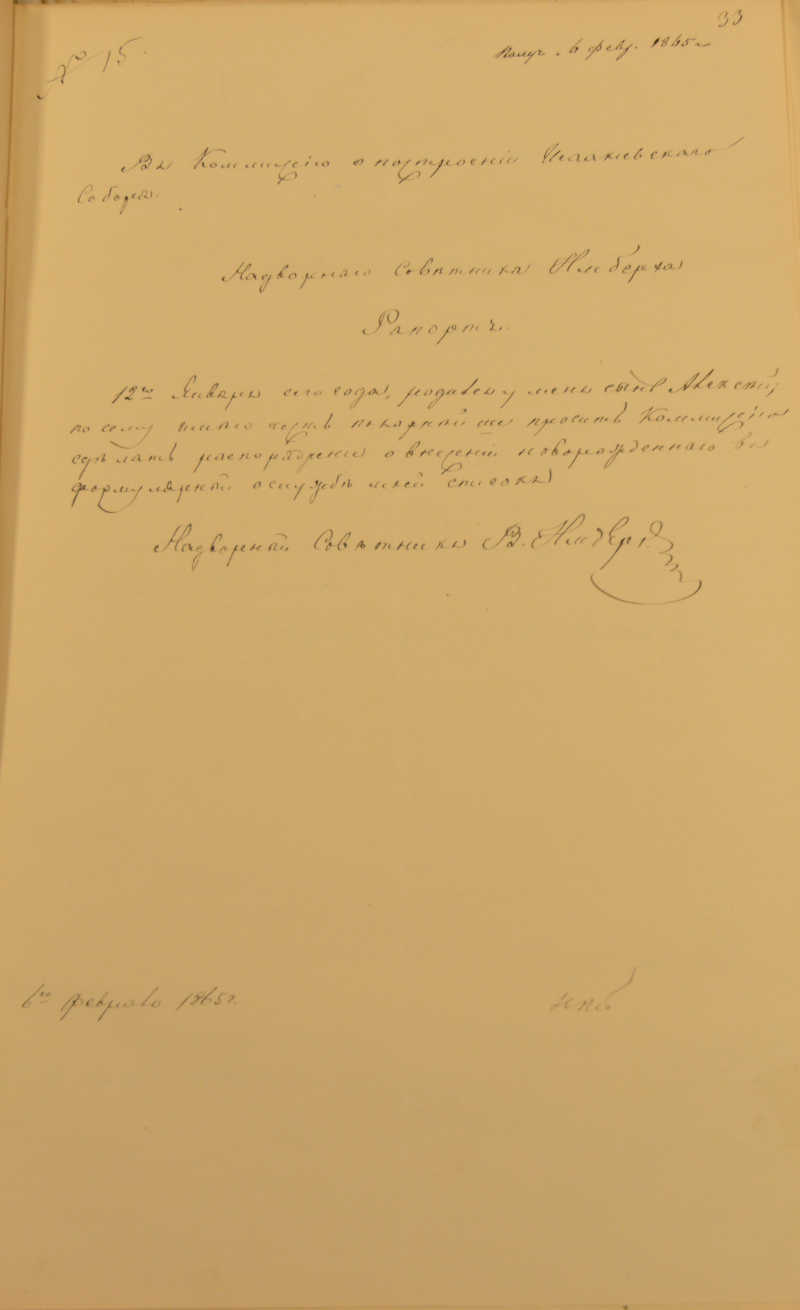 33
№ 15.
Получ. 6 февр. 1865 г.
Въ Коммиссію о построеніи Исаакіевскаго
Собора.
Надворнаго Совѣтника
Рапортъ.
12го Января сего года, родился у меня сынъ Алексѣй,
по сему имѣю честь покорнѣйше просить Коммиссію
сдѣлать распоряженіе о внесеніи новорожденнаго въ
формулярный о службѣ моей списокъ
Надворный Совѣтникъ В.
6го февраля 1865 г.